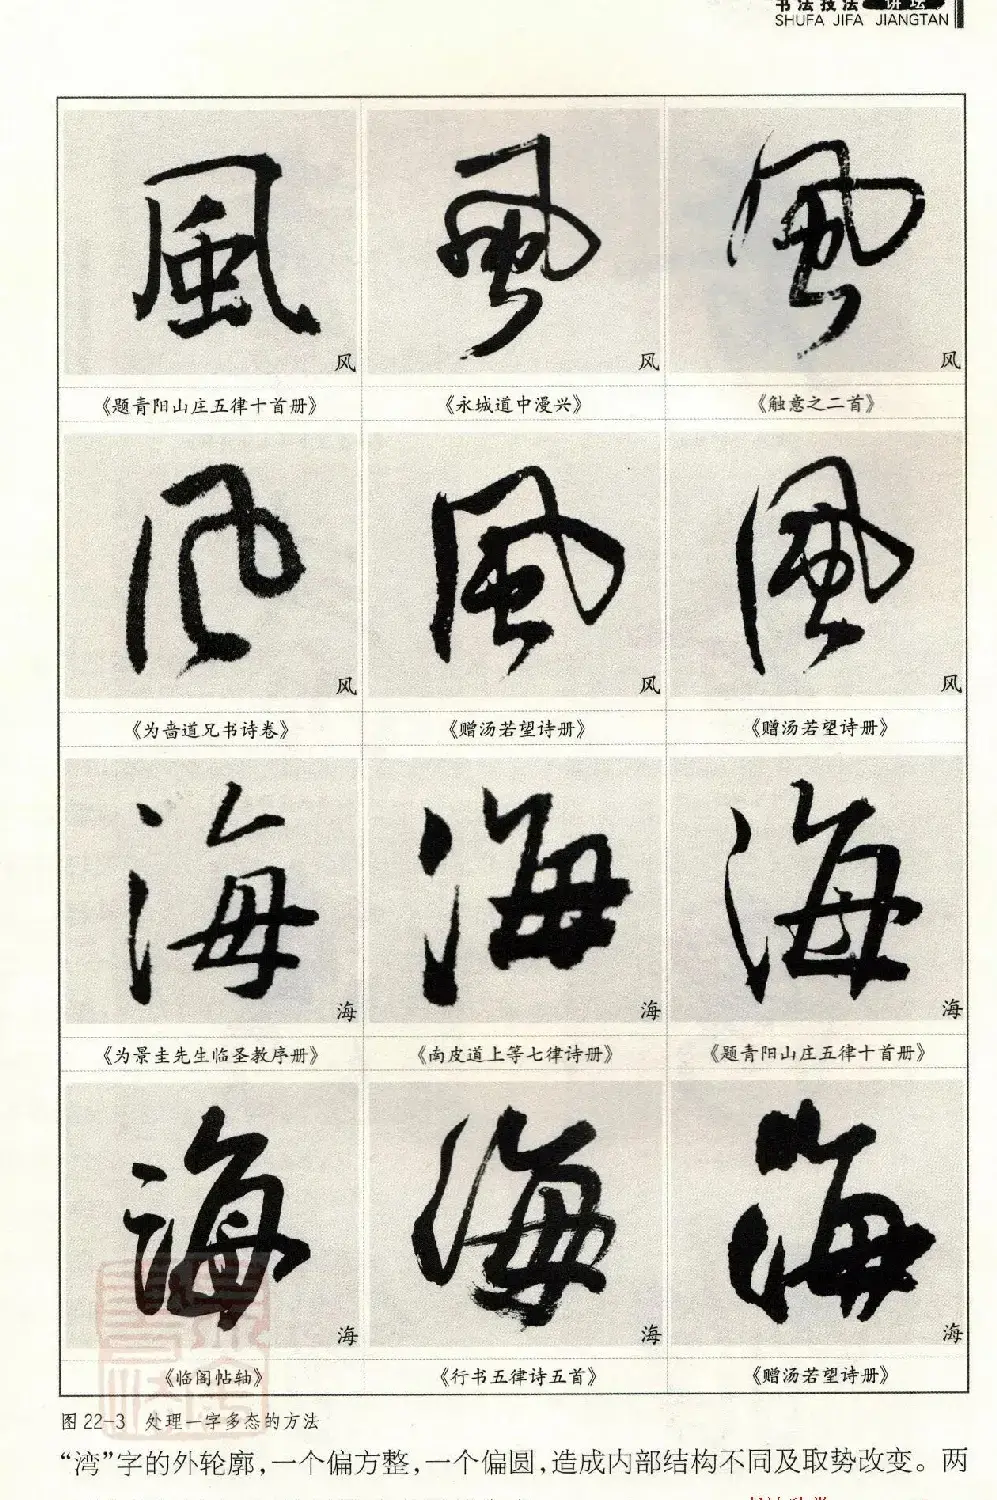 书法技法 讲坛
SHUFA JIFA JIANGTAN
風 風 風
风 风 风
《题青阳山庄五律十首册》 《永城道中漫兴》 《触意之二首》
风 風 風
风 风 风
《为啬道兄书诗卷》 《赠汤若望诗册》 《赠汤若望诗册》
海 海 海
海 海 海
《为景圭先生临圣教序册》 《南皮道上等七律诗册》 《题青阳山庄五律十首册》
海 海 海
海 海 海
《临阁帖轴》 《行书五律诗五首》 《赠汤若望诗册》
图 22-3 处理一字多态的方法
“湾”字的外轮廓,一个偏方整,一个偏圆,造成内部结构不同及取势改变。两